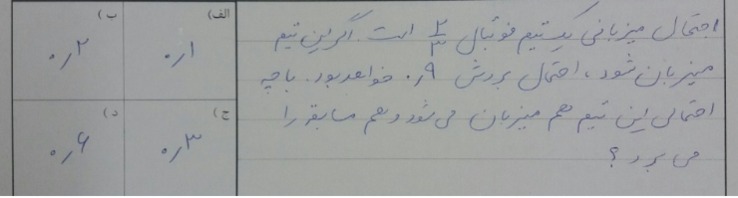 احتمال میزبانی یک تیم فوتبال ۲/۳ است. اگر این تیم
میزبان شود، احتمال بردش ۰٫۹ خواهد بود. با چه
احتمالی این تیم هم میزبان می‌شود و هم مسابقه را
می برد؟
الف) ۰٫۱
ب) ۰٫۲
ج) ۰٫۳
د) ۰٫۶